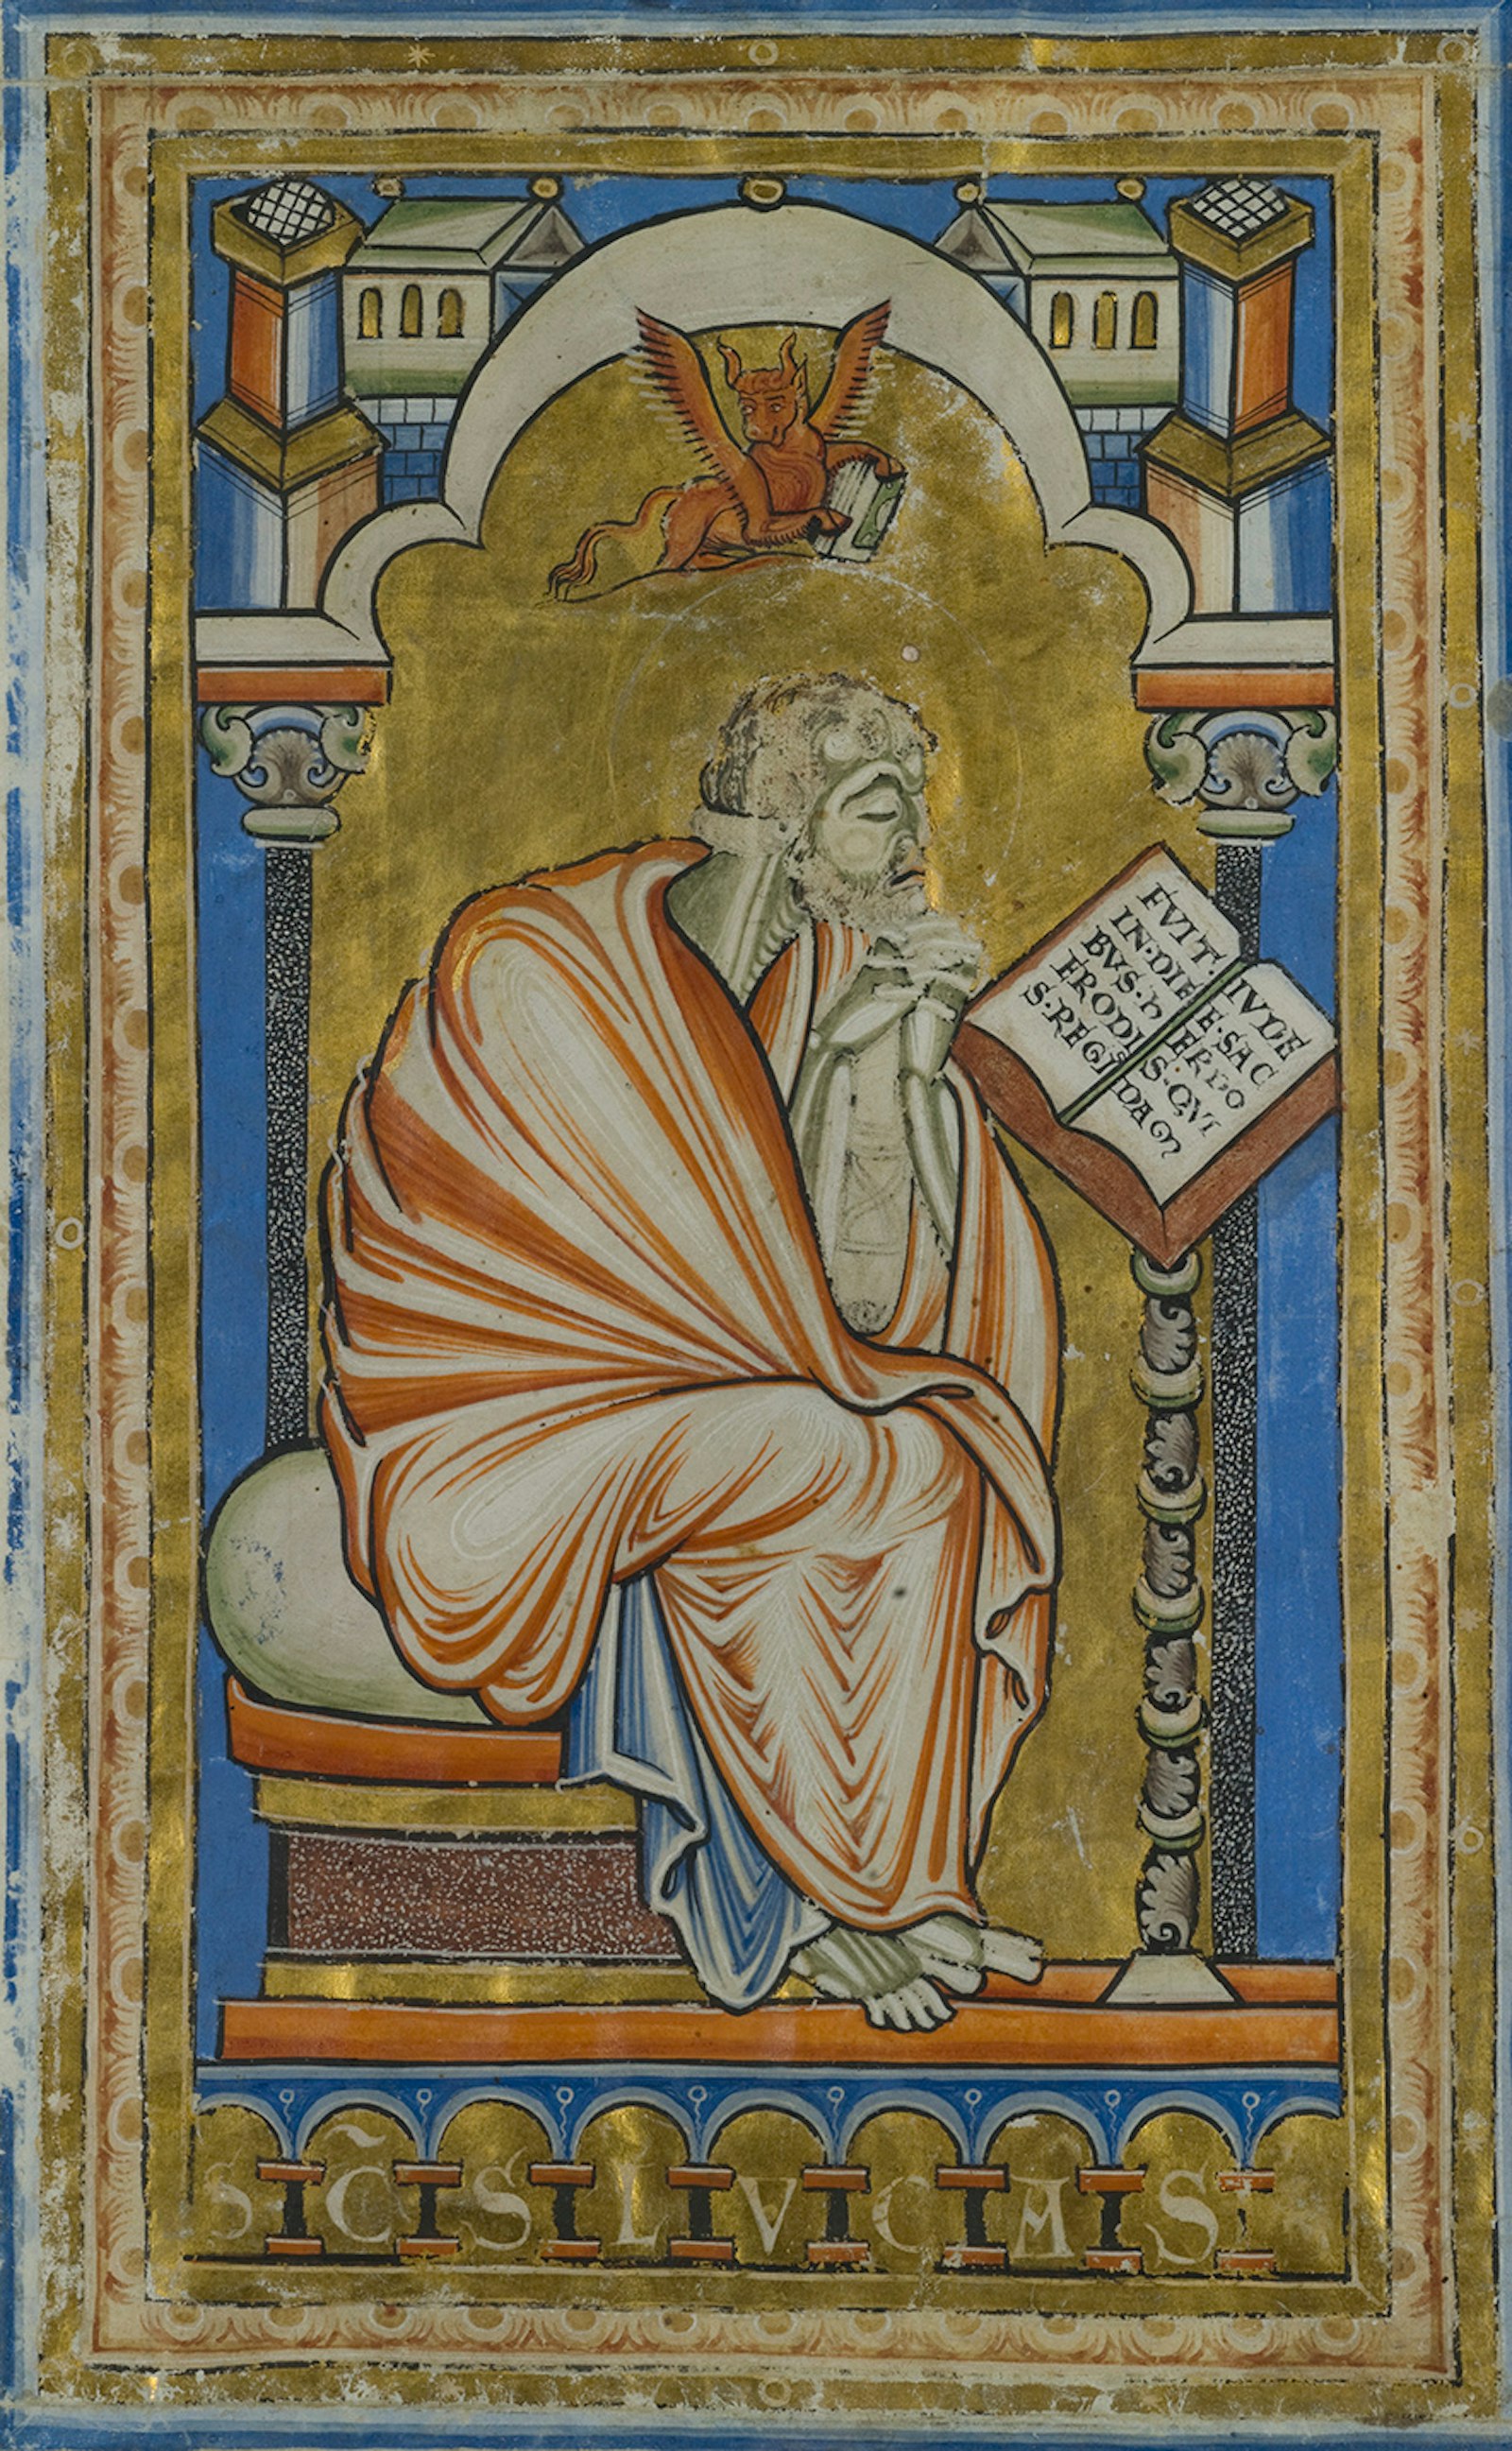 FVIT.
IN·DIE
BVS·h
ERODI
S·REGIS
IVDE
E·SAC
ERDO
S·QVI
DAM
S C̃ S L V C A S